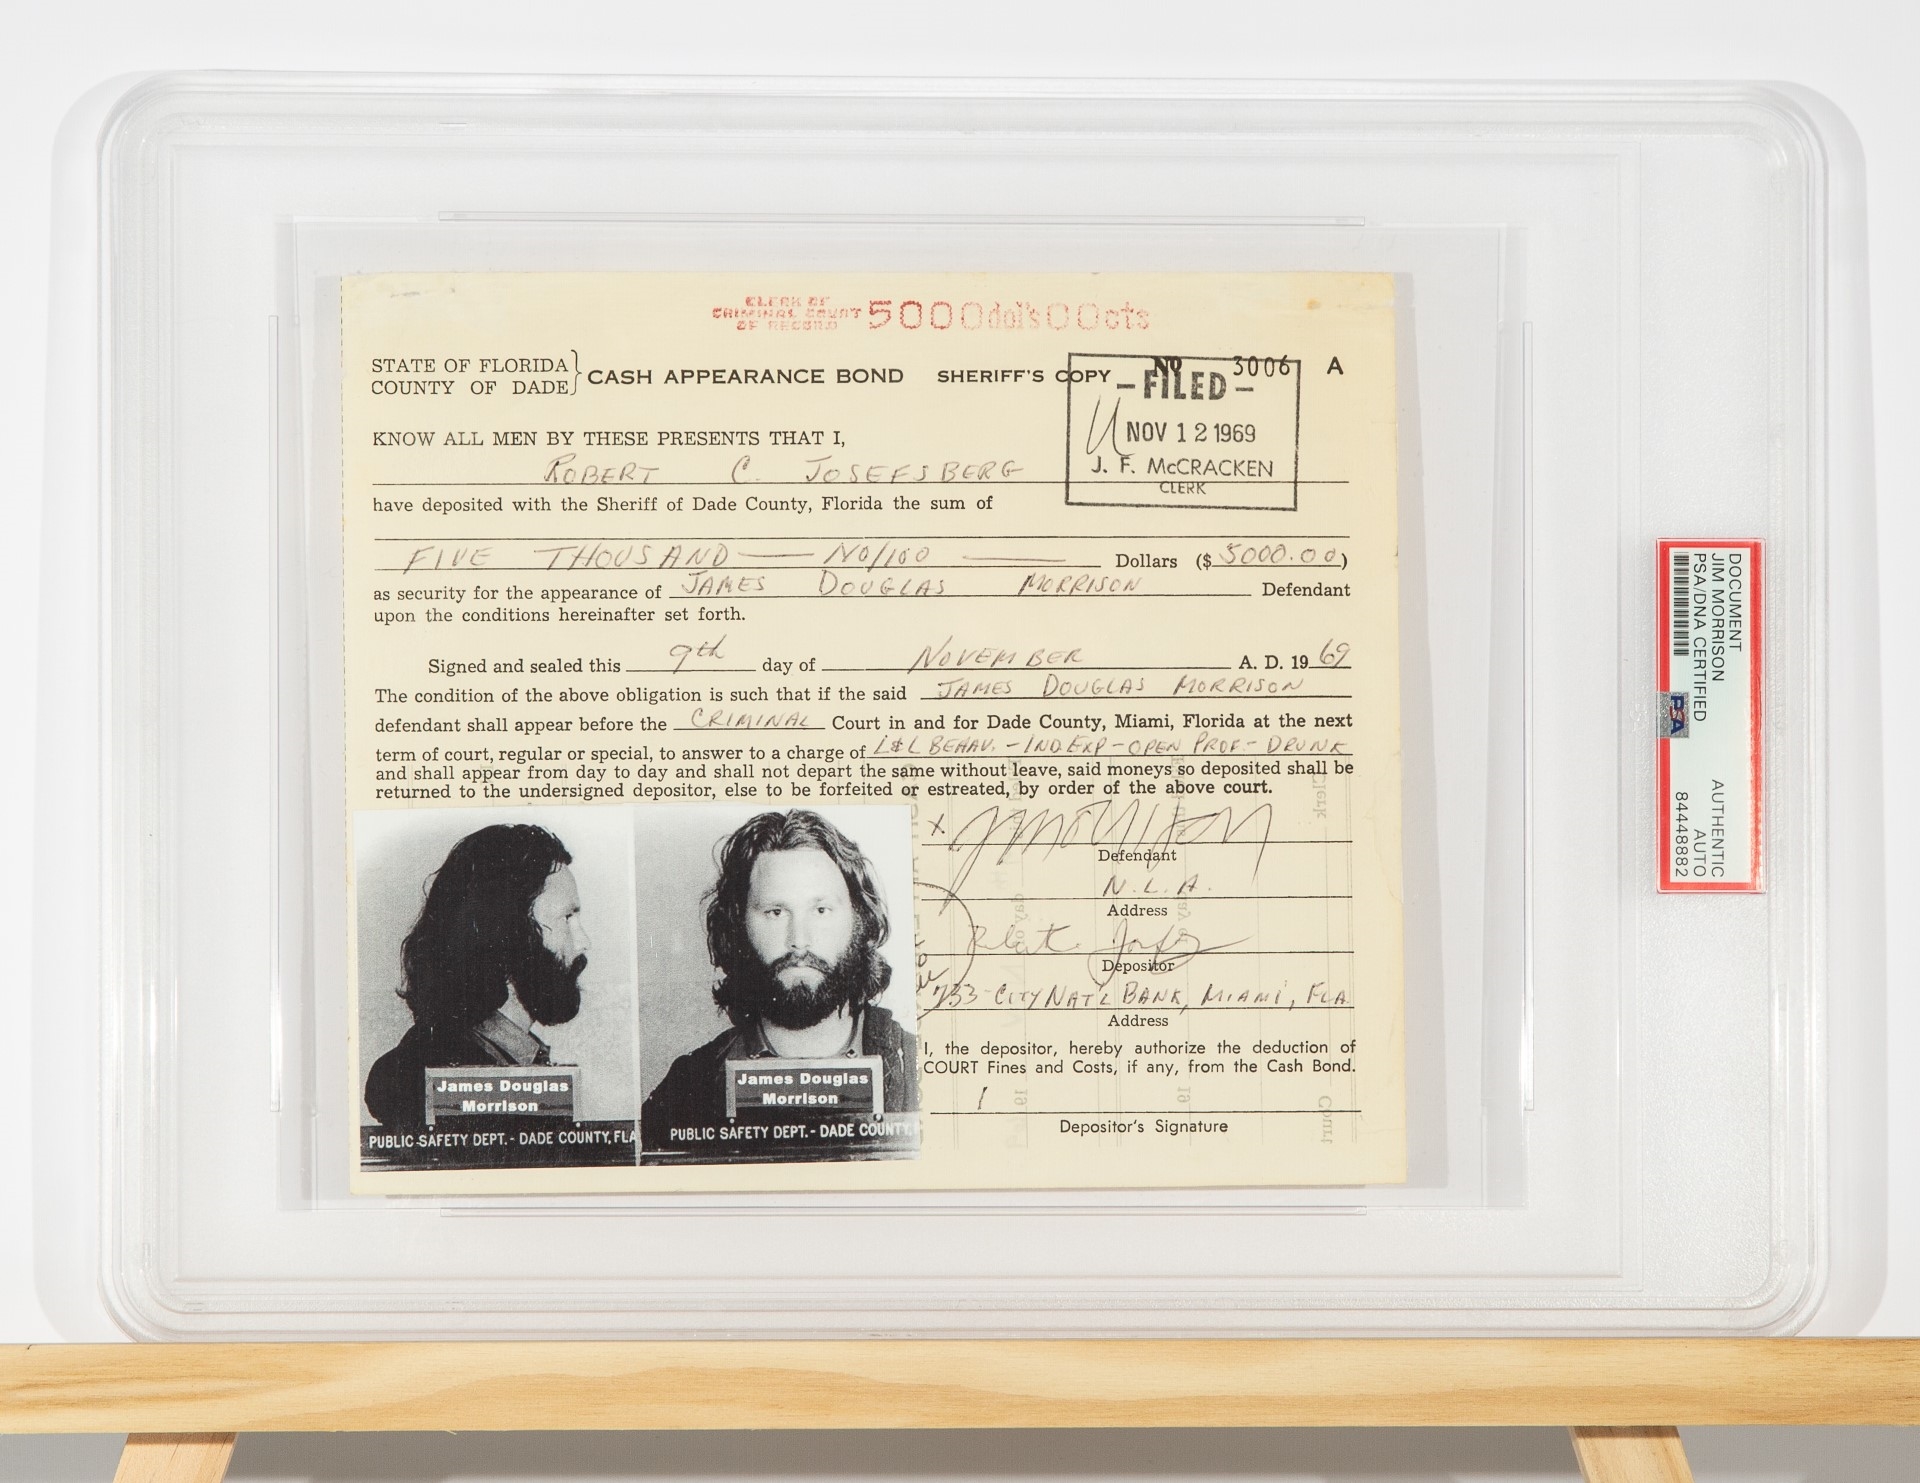 CLERK OF
CRIMINAL COURT
OF RECORD
5000dol's00cts
STATE OF FLORIDA
COUNTY OF DADE
CASH APPEARANCE BOND SHERIFF'S COPY
No 3006 A
- FILED -
NOV 12 1969
J. F. McCRACKEN
CLERK
KNOW ALL MEN BY THESE PRESENTS THAT I,
ROBERT C. JOSEFSBERG
have deposited with the Sheriff of Dade County, Florida the sum of
FIVE THOUSAND — NO/100 — Dollars ($ 5000.00)
as security for the appearance of JAMES DOUGLAS MORRISON Defendant
upon the conditions hereinafter set forth.
Signed and sealed this 9th day of NOVEMBER A. D. 1969
The condition of the above obligation is such that if the said JAMES DOUGLAS MORRISON
defendant shall appear before the CRIMINAL Court in and for Dade County, Miami, Florida at the next
term of court, regular or special, to answer to a charge of L&L BEHAV. - IND EXP - OPEN PROF - DRUNK
and shall appear from day to day and shall not depart the same without leave, said moneys so deposited shall be
returned to the undersigned depositor, else to be forfeited or estreated, by order of the above court.
X JMorrison
Defendant
N.L.A.
Address
Depositor
733 - CITY NAT'L BANK, MIAMI, FLA
Address
I, the depositor, hereby authorize the deduction of
COURT Fines and Costs, if any, from the Cash Bond.
Depositor's Signature
James Douglas
Morrison
PUBLIC SAFETY DEPT. - DADE COUNTY, FLA
James Douglas
Morrison
PUBLIC SAFETY DEPT. - DADE COUNTY,
DOCUMENT
JIM MORRISON AUTHENTIC
PSA/DNA CERTIFIED AUTO
84448882
PSA